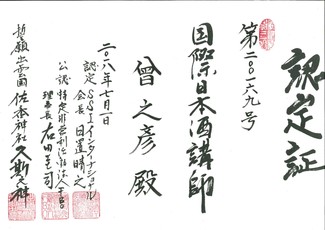 認定証
第二〇一六九号
国際日本酒講師
曾之彦 殿
二〇一八年七月一日
認定 SSIインターナショナル
会長 日置晴之
公認 特定非営利活動法人FBO
理事長 右田圭司
酒造之國 佐香神社